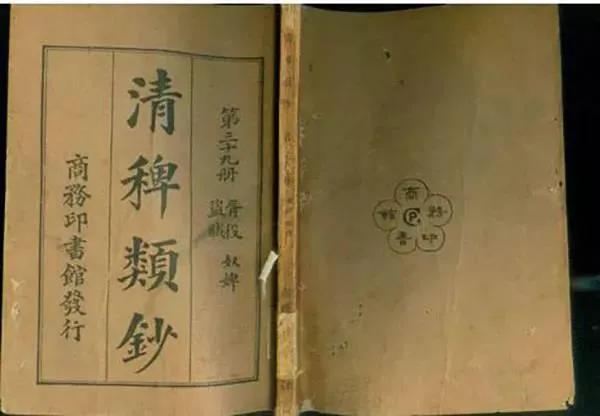 第三十九册
胥役 奴婢
盗賊
清稗類鈔
商務印書館發行
商務印書館
CP